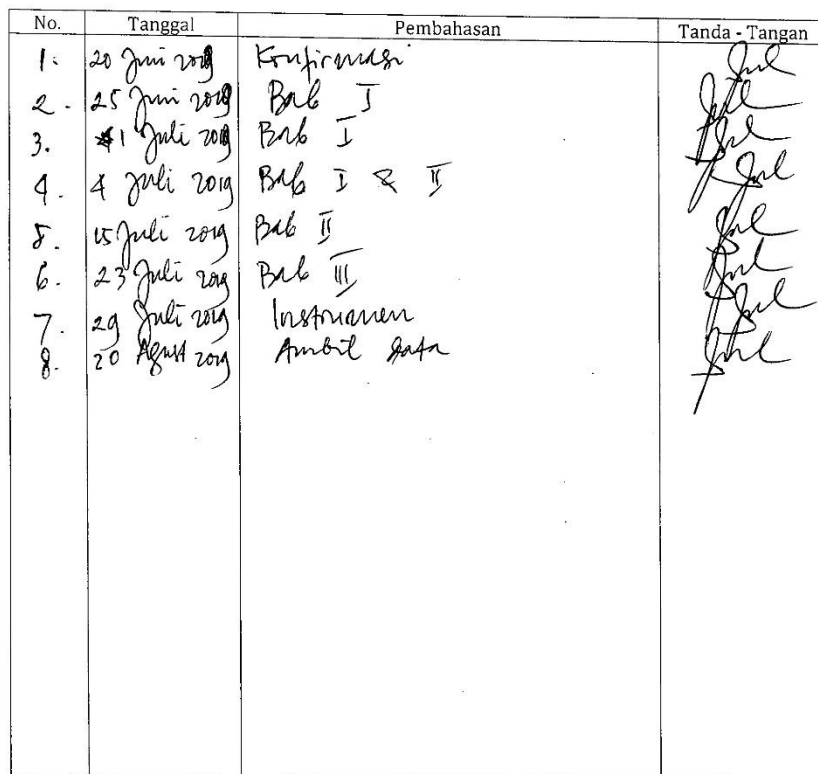 No. Tanggal Pembahasan Tanda - Tangan
1. 20 Juni 2019 Konfirmasi
2. 25 Juni 2019 Bab I
3. 1 Juli 2019 Bab I
4. 4 Juli 2019 Bab I & II
5. 15 Juli 2019 Bab II
6. 23 Juli 2019 Bab III
7. 29 Juli 2019 Instrumen
8. 20 Agust 2019 Ambil data